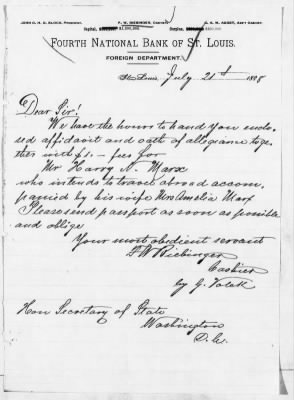 JOHN C. H. D. BLOCK, PRESIDENT. F. W. BIEBINGER, CASHIER. G. A. M. AUGST, ASS'T CASHIER.
Capital, Surplus,
FOURTH NATIONAL BANK OF ST. LOUIS.
FOREIGN DEPARTMENT.
St. Louis, July 21st 1888
Dear Sir!
We have the honor to hand you enclo-
sed affidavit and oath of allegiance toge-
ther with $1.– fees for
Mr Harry N. Marx
who intends to travel abroad accom-
panied by his wife Mrs Amelia Marx
Please send passport as soon as possible
and oblige
Your most obedient servant
F W Biebinger
Cashier
by G.
Hon Secretary of State
Washington
D.C.